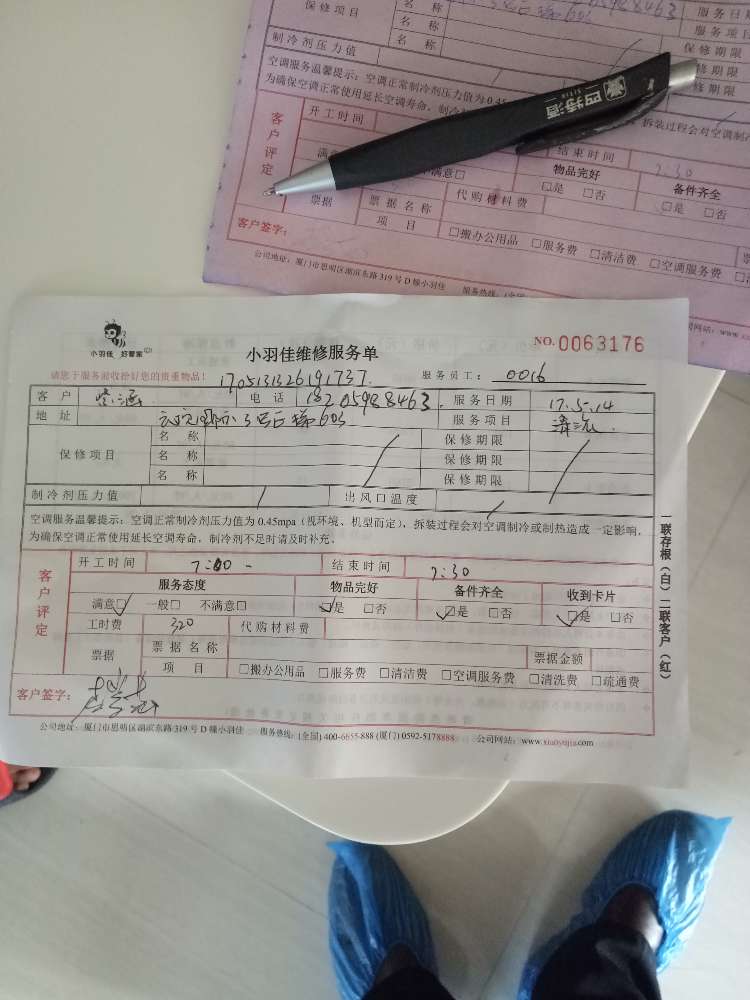 保修项目 名 称 服务日期
名 称 服务项目
名 称 保修期限
制冷剂压力值 保修期限
空调服务温馨提示：空调正常制冷剂压力值为0.45
为确保空调正常使用延长空调寿命，制冷 拆装过程会对空调制冷
四特酒
客户评定 开工时间 结束时间 7:30
满意 不满意□ 物品完好 备件齐全
□是 □否 □是 □否
代购材料费
票据 票据名称
项 目 □搬办公用品 □服务费 □清洁费 □空调服务费
客户签字：
公司地址：厦门市思明区湖滨东路319号D幢小羽佳 服务热线：(全国)
小羽佳 好管家
小羽佳维修服务单 NO.0063176
请您于服务前收拾好您的贵重物品！ 服务员工： 0016
客户 电话 18205988463 服务日期 17.5.14
地址 服务项目 清洗
保修项目 名 称 保修期限
名 称 保修期限
名 称 保修期限
制冷剂压力值 出风口温度
空调服务温馨提示：空调正常制冷剂压力值为0.45mpa（视环境、机型而定），拆装过程会对空调制冷或制热造成一定影响，
为确保空调正常使用延长空调寿命，制冷剂不足时请及时补充。
客户评定 开工时间 7:00 - 结束时间 7:30
服务态度 物品完好 备件齐全 收到卡片
满意☑ 一般□ 不满意□ ☑是 □否 ☑是 □否 ☑是 □否
工时费 320 代购材料费
票据 票据名称 票据金额
项 目 □搬办公用品 □服务费 □清洁费 □空调服务费 □清洗费 □疏通费
客户签字：
公司地址：厦门市思明区湖滨东路319号D幢小羽佳 服务热线：(全国) 400-6655-888 (厦门) 0592-5178888 公司网站：www.xiaoyujia.com
一联存根（白）二联客户（红）